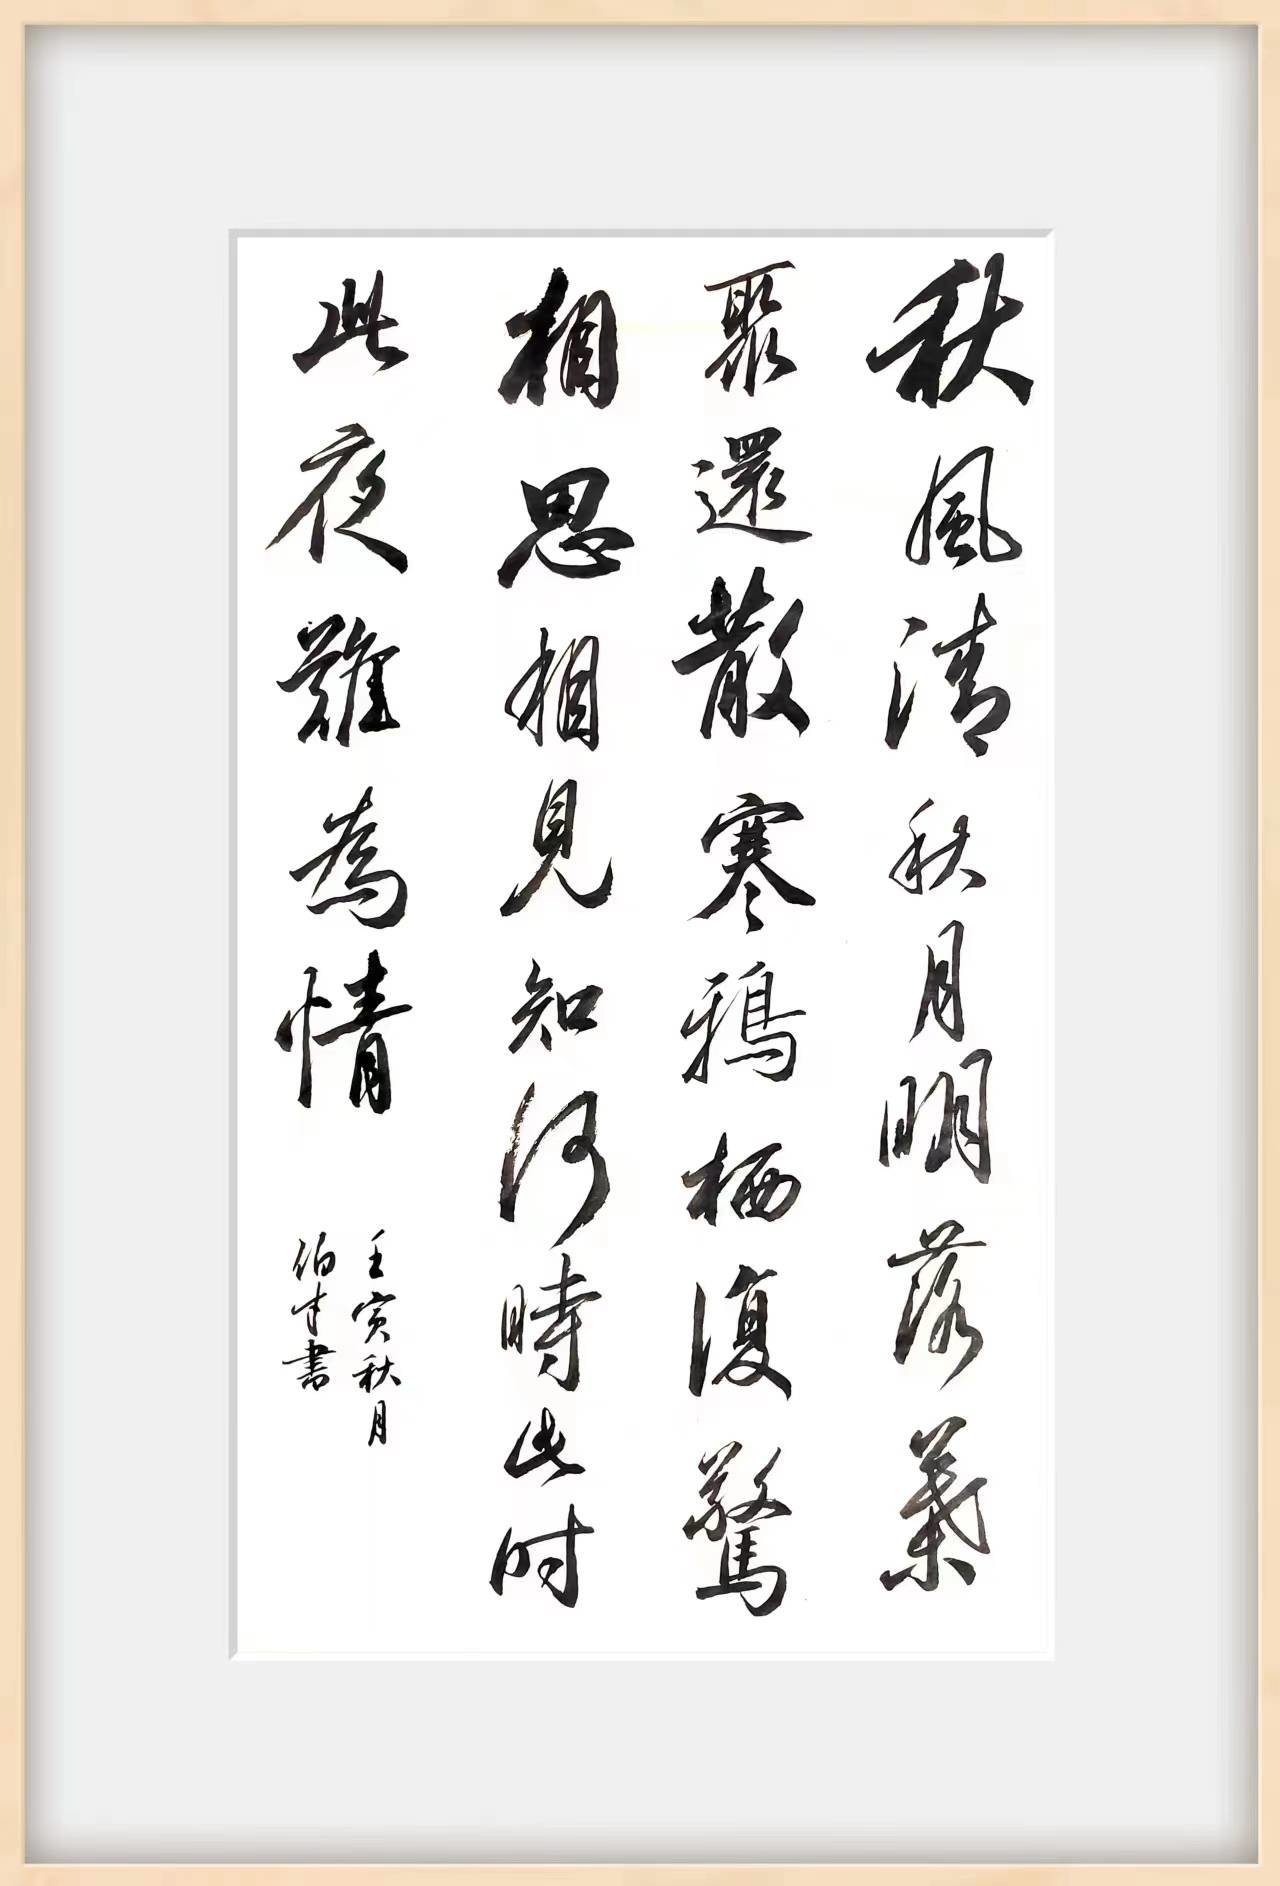 秋風清秋月明落葉
聚還散寒鴉栖復驚
相思相見知何時此时
此夜難為情
壬寅秋月
伯書